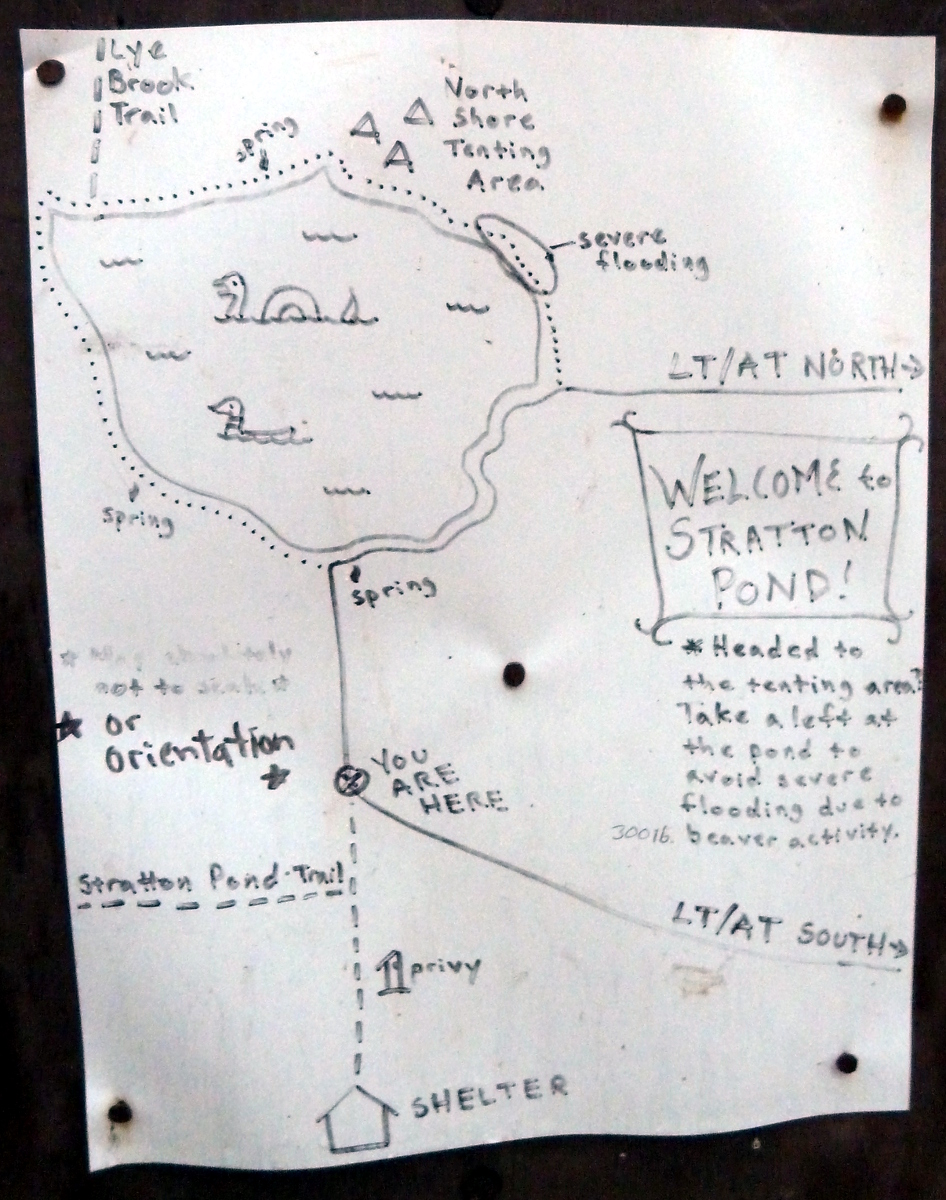 Lye
Brook
Trail
spring
North
Shore
Tenting
Area
severe
flooding
LT/AT NORTH→
WELCOME to
STRATTON
POND!
spring
spring
* Headed to
the tenting area?
Take a left at
the pond to
avoid severe
flooding due to
beaver activity.
300lb.
* Map absolutely
not to scale *
* or
orientation
*
YOU
ARE
HERE
Stratton Pond Trail
LT/AT SOUTH→
privy
SHELTER